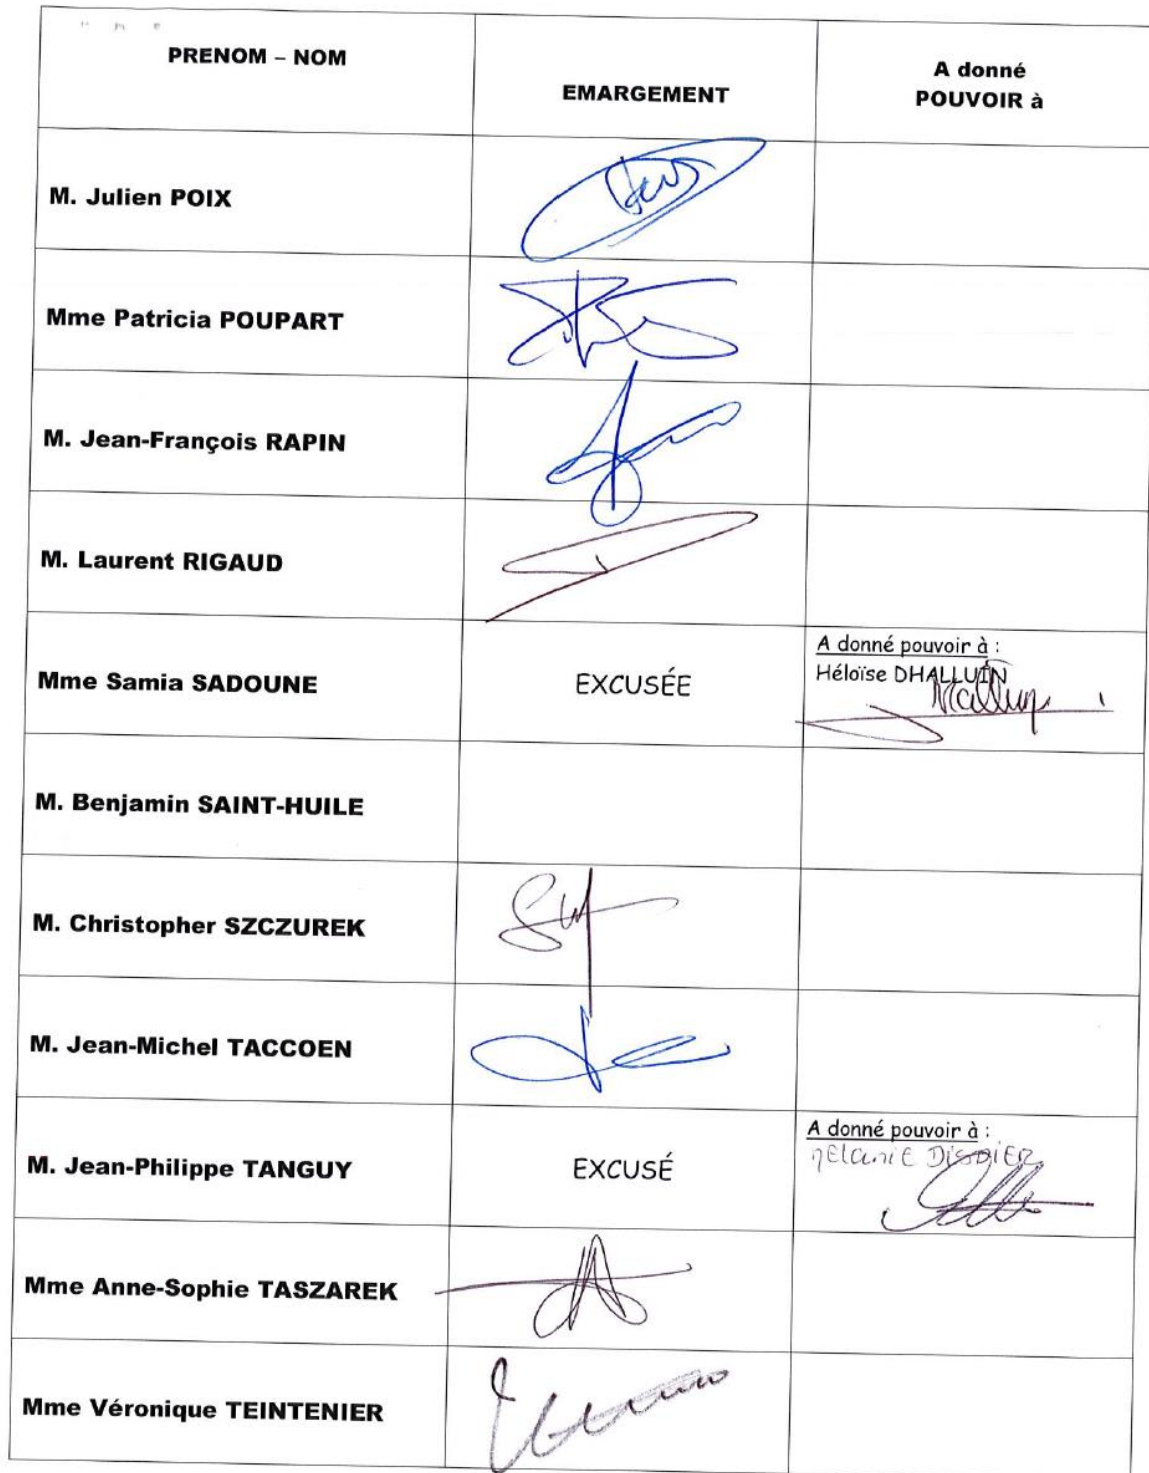 PRENOM – NOM
EMARGEMENT
A donné
POUVOIR à
M. Julien POIX
Mme Patricia POUPART
M. Jean-François RAPIN
M. Laurent RIGAUD
Mme Samia SADOUNE
EXCUSÉE
A donné pouvoir à :
Héloïse DHALLUIN
M. Benjamin SAINT-HUILE
M. Christopher SZCZUREK
M. Jean-Michel TACCOEN
M. Jean-Philippe TANGUY
EXCUSÉ
A donné pouvoir à :
MElaniE DISDIER
Mme Anne-Sophie TASZAREK
Mme Véronique TEINTENIER